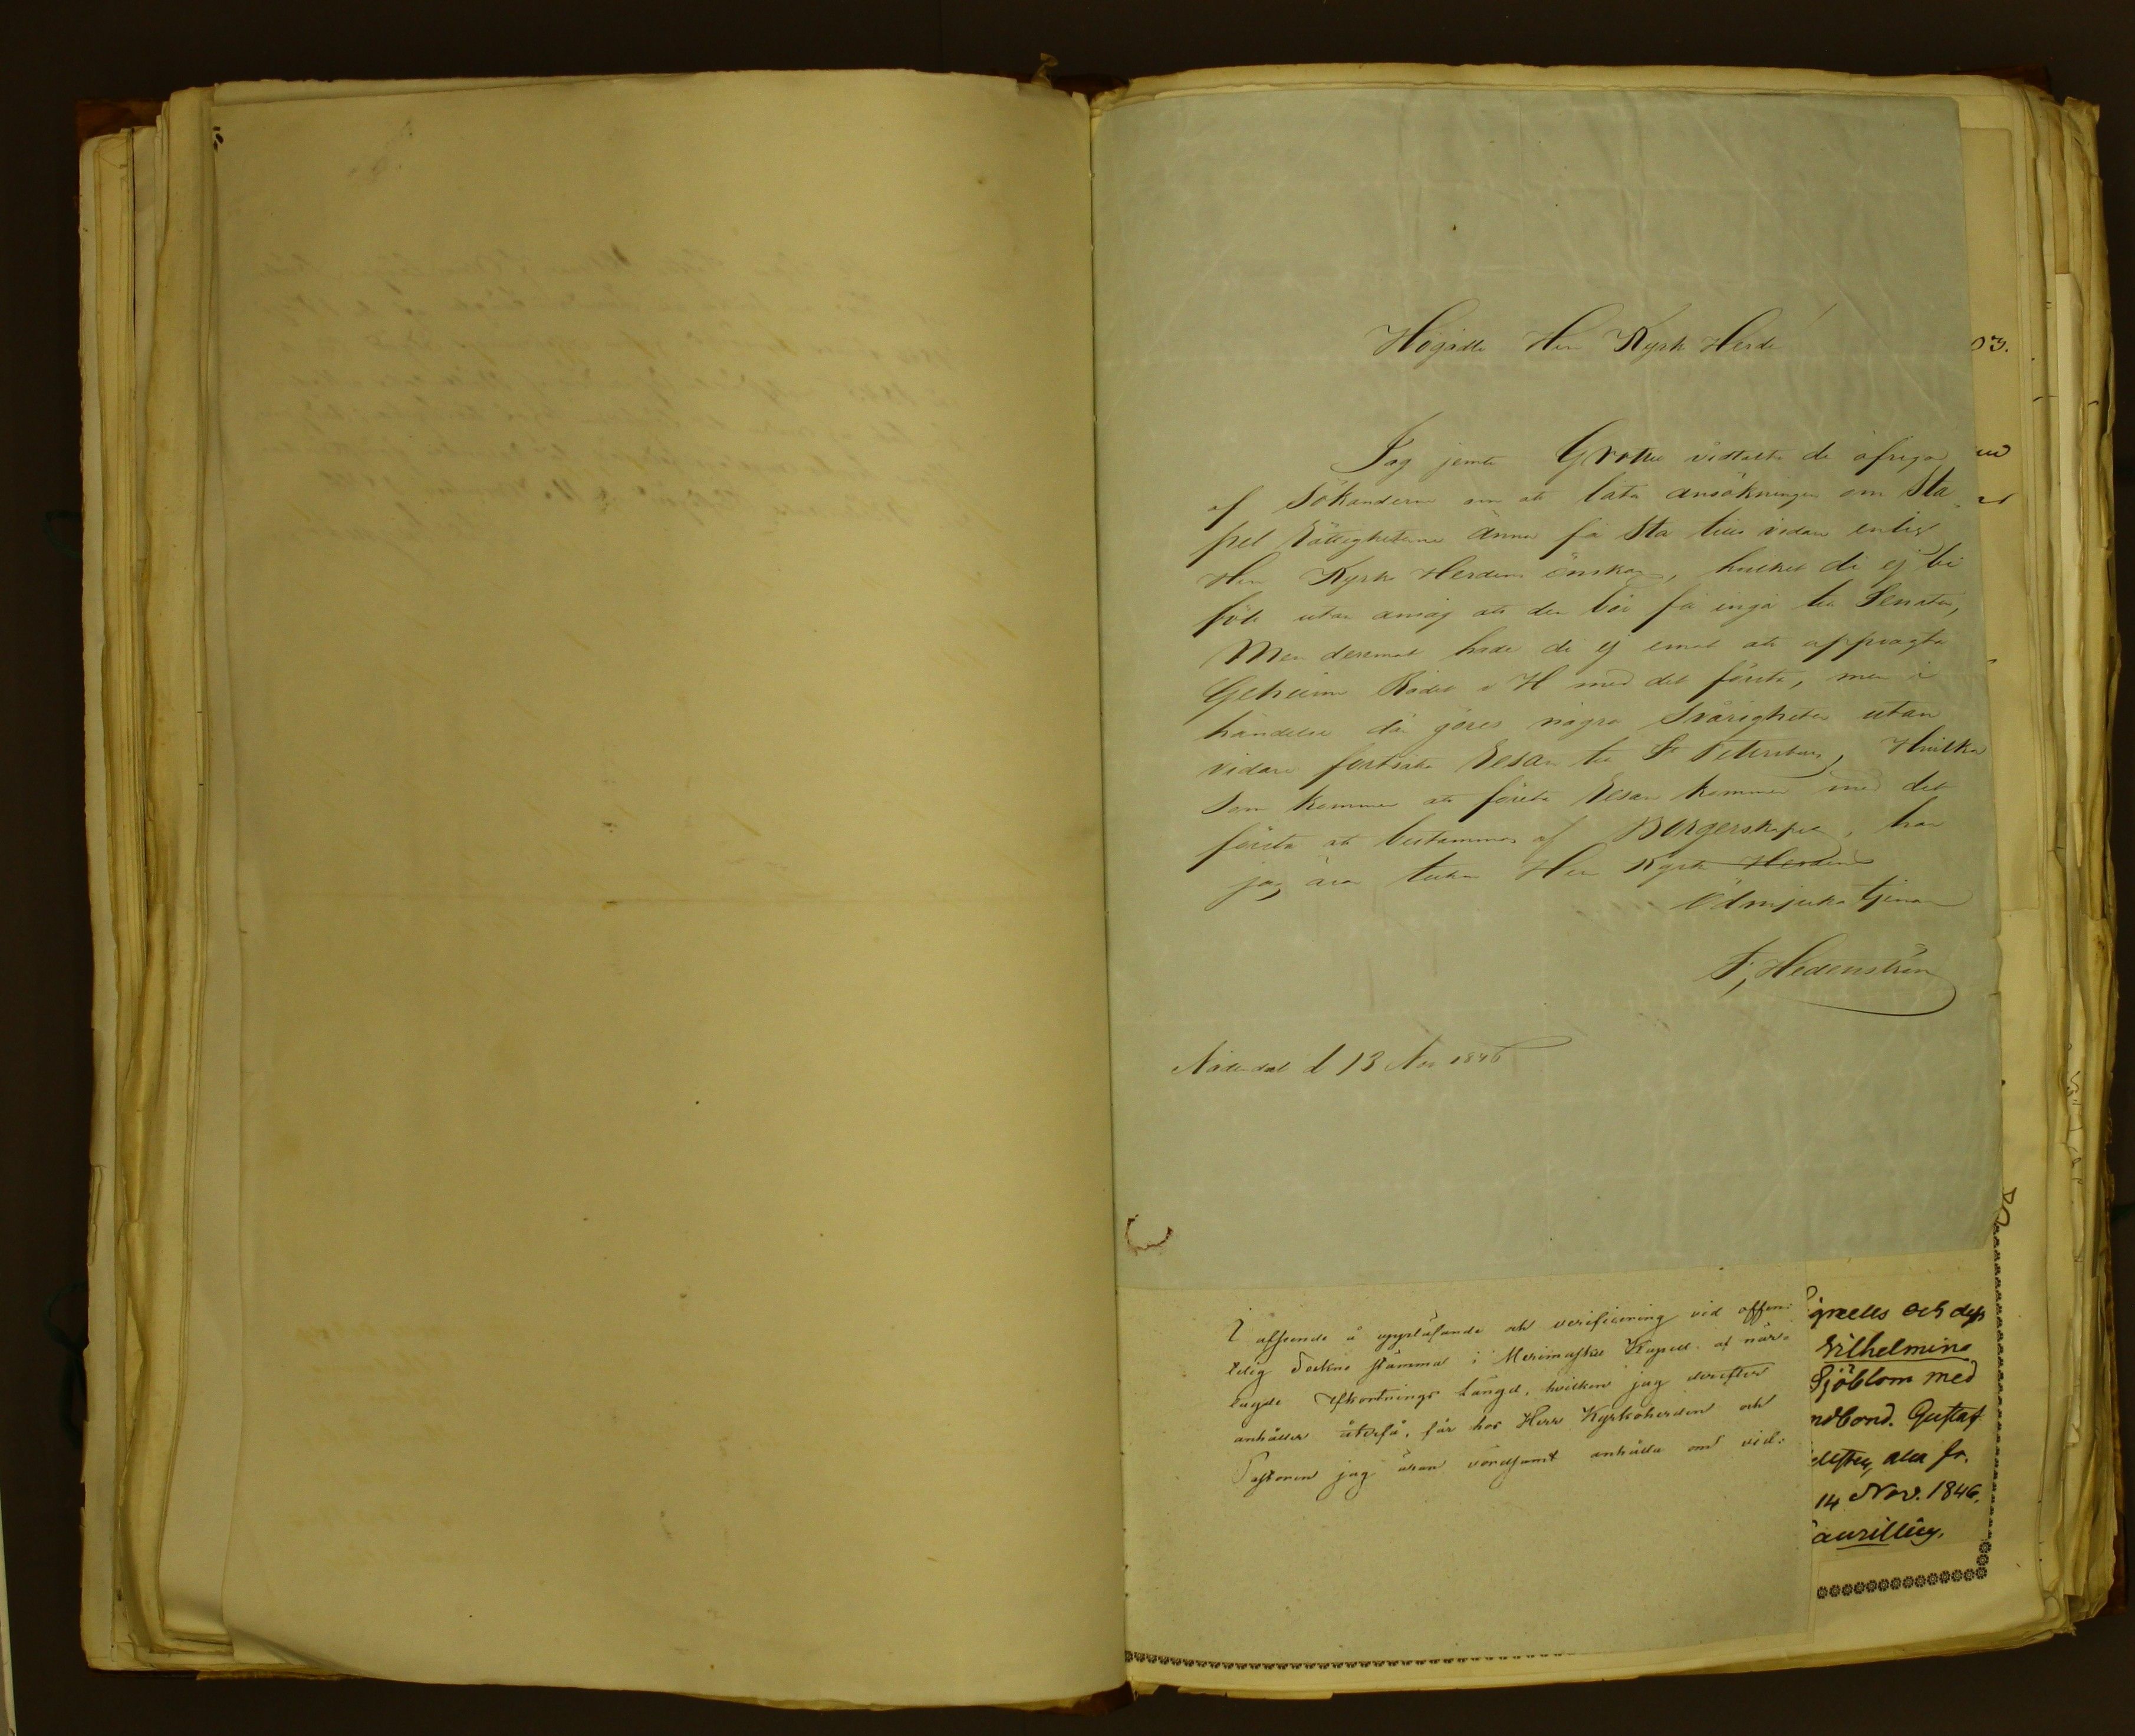 Högädle Herr Kyrk Herde!
Jag jemte vidtalte de öfriga
af Sökanderne om att låta ansökningen om Sta
pel Rättigheterne ännu få stå tills vidare enligt
Herr Kyrko Herdens önskan, hvilket de ej bi
föll utan ansåg att den bör få ingå till Senaten,
Men deremot hade de ej emot att uppvagta
Geheime Rådet v H med det första, men i
händelse där göres några Svårigheter utan
vidare fortsätta Resan till St Petersburg, Hvilka
som kommer att företa Resan kommer med det
första att bestämmas af Borgerskapet, har
jag äran teckna Herr Kyrk Herdens
Ödmjuka tjenare
F, Hedenström
Nådendal d 13 Nov 1846
I afseende å uppläsande och verificering vid offen:
telig Sockne stämma i Merimasku Kapell af när:
lagde Afkortnings Längd, hvilken jag derefter
anhåller återfå, får hos Herr Kyrkoherden och
Pastoren jag äran vördsamt anhålla om vid:
03.
och des
Wilhelmina
Sjöblom med
ndbond. Gustaf
14 Nov. 1846.